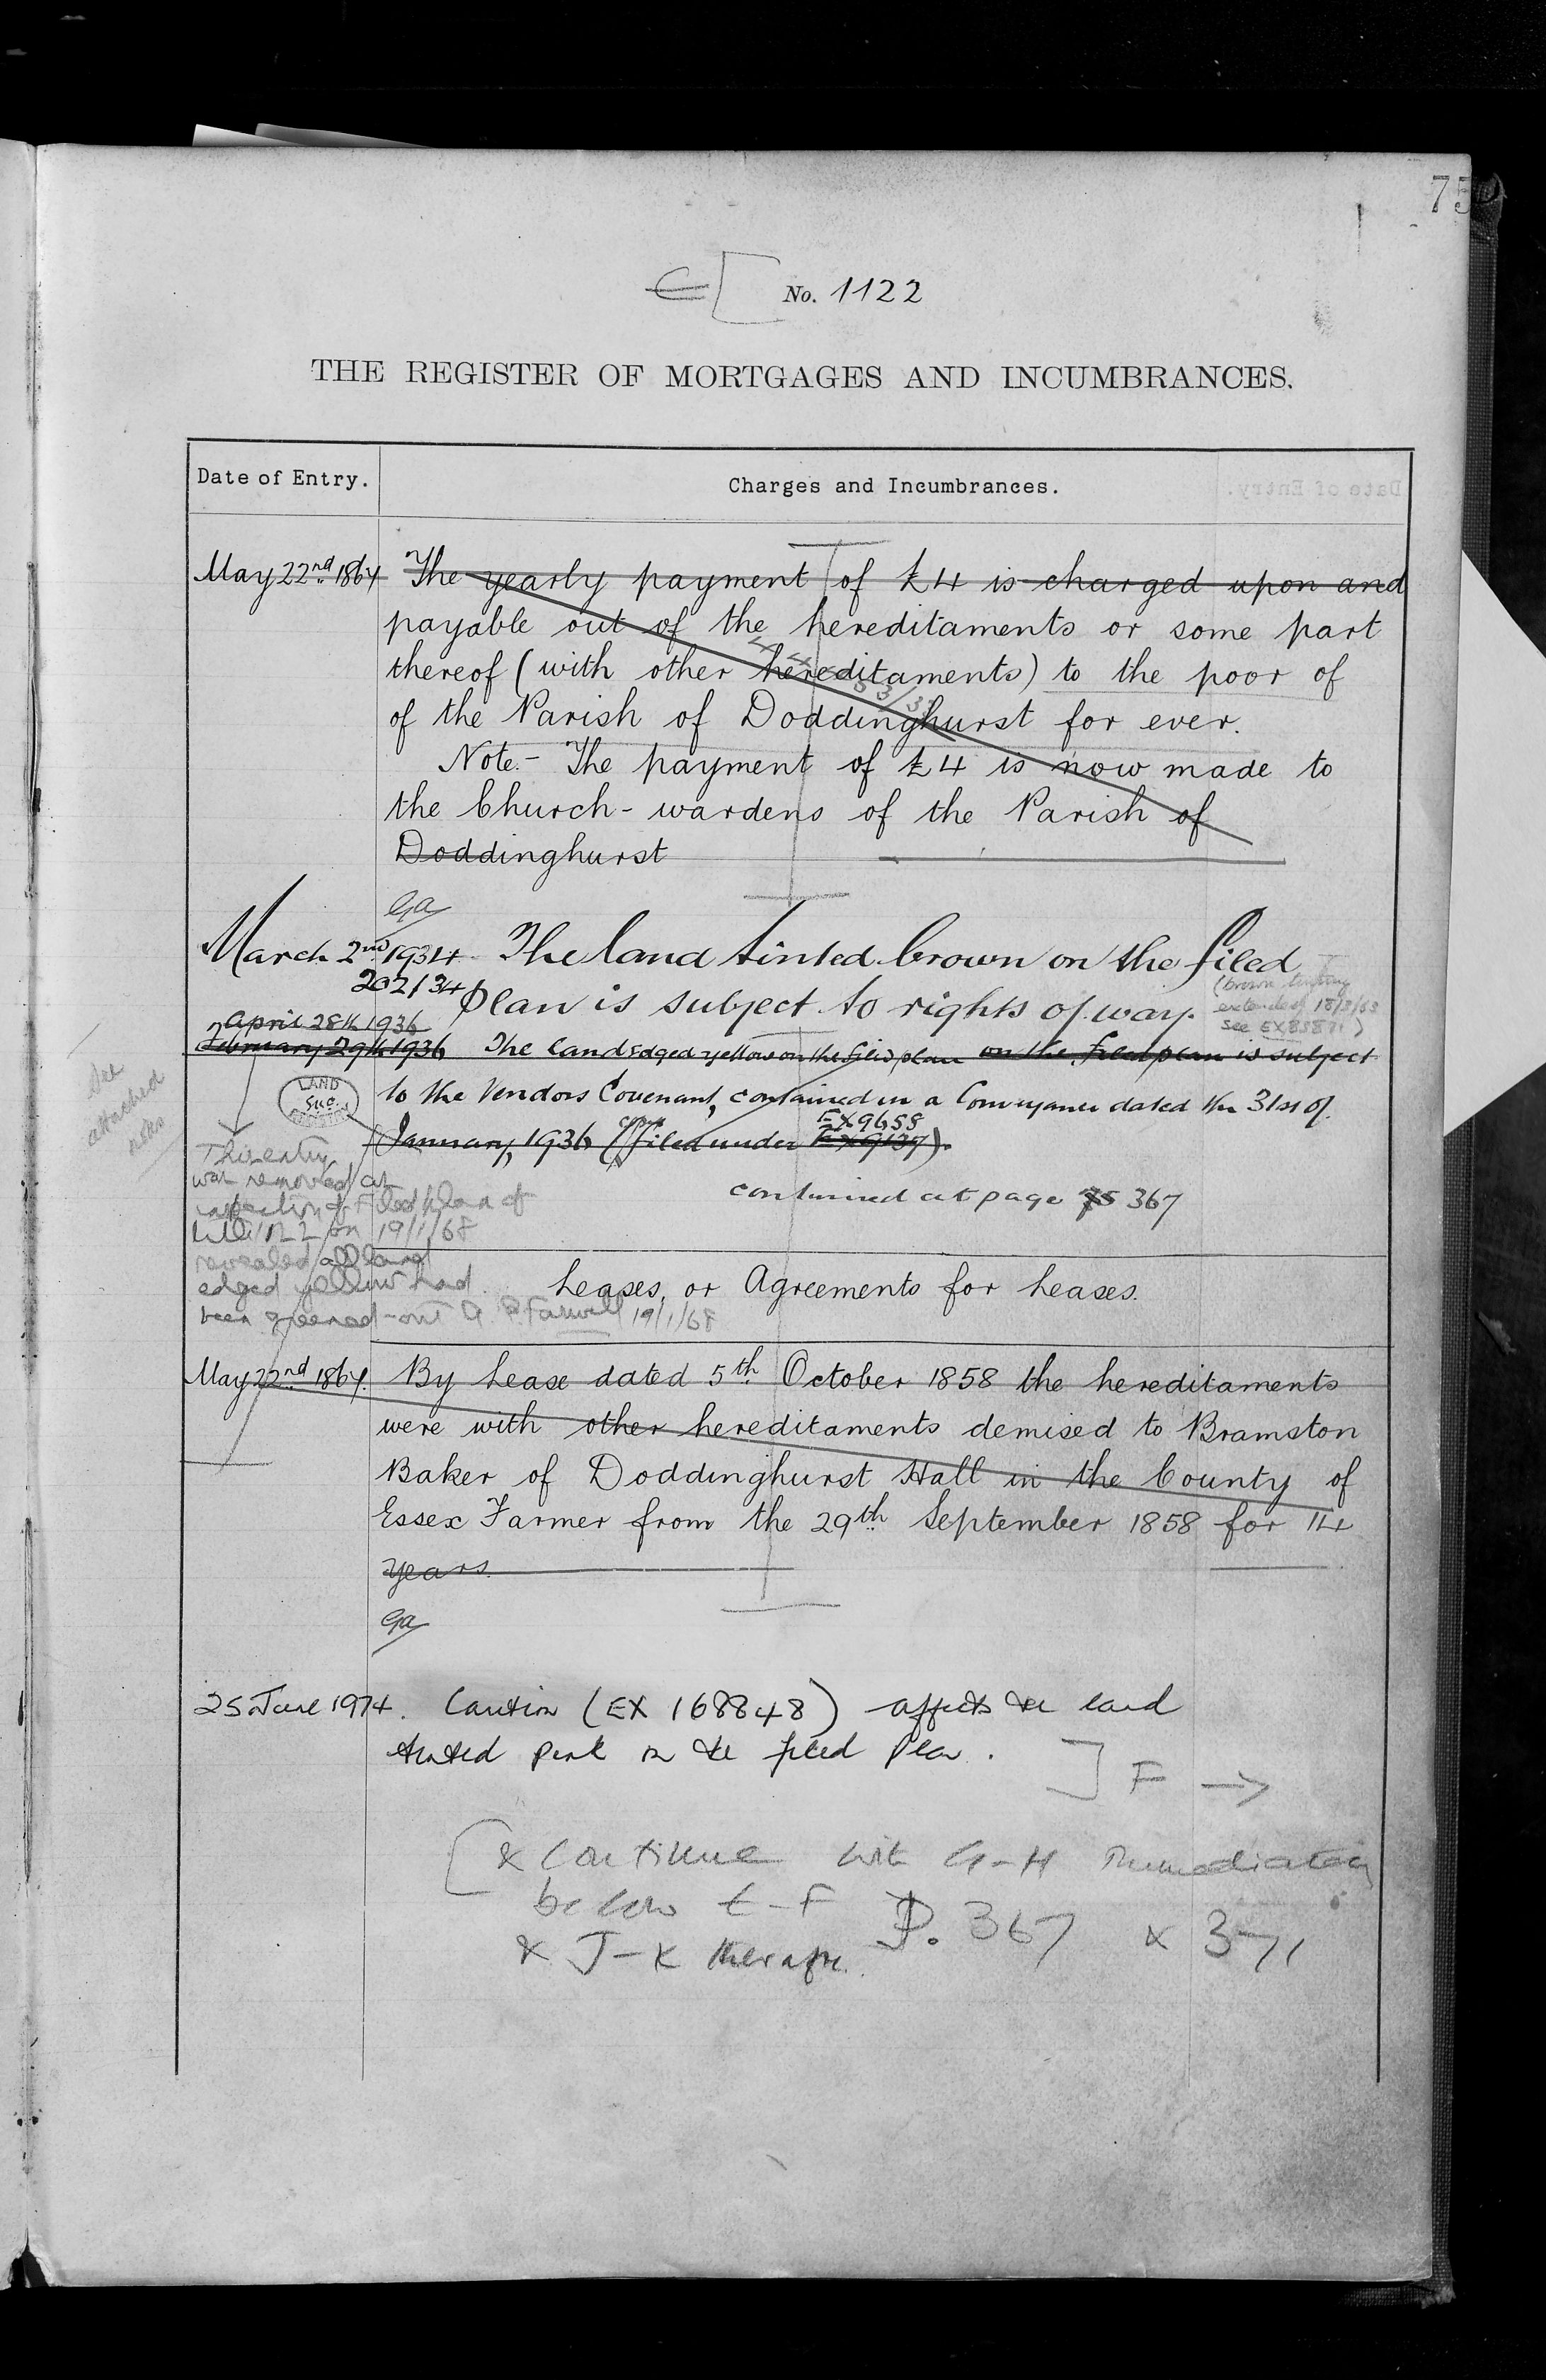 75
E[ No. 1122
THE REGISTER OF MORTGAGES AND INCUMBRANCES.
Date of Entry.
Charges and Incumbrances.
Date of Entry.
May 22nd 1864
The yearly payment of £4 is charged upon and
payable out of the hereditaments or some part
thereof (with other hereditaments) to the poor of
of the Parish of Doddinghurst for ever.
Note:- The payment of £4 is now made to
the Church-wardens of the Parish of
Doddinghurst
Ga
March 2nd 1934
202/34
The land tinted brown on the filed
plan is subject to rights of way.
(brown tinting
extended 18/3/63
see EX85871)
April 28th 1936
February 29th 1936
The land edged yellow on the filed plan on the filed plan is subject
to the Vendors Covenant, contained in a Conveyance dated the 31st of
January, 1936 (copy filed under EX9658 EX9139).
LAND
See
attached
This entry
was removed as
inspection of Filed plan of
title 1122 on 19/1/68
revealed all land
edged yellow had
been greened-out 19/1/68
continued at page 75 367
Leases, or Agreements for Leases.
May 22nd 1864.
By Lease dated 5th October 1858 the hereditaments
were with other hereditaments demised to Bramston
Baker of Doddinghurst Hall in the County of
Essex Farmer from the 29th September 1858 for 14
years.
Ga
25 June 1974.
Caution (EX 168848) affects the land
tinted pink on the filed plan.
] F →
[& continue with G-H immediately
below E-F P. 367 & 371
& J-K thereafter.